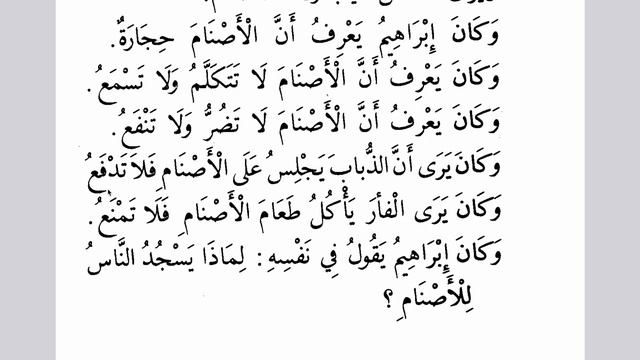 وَكَانَ إِبْرَاهِيمُ يَعْرِفُ أَنَّ الْأَصْنَامَ حِجَارَةٌ.
وَكَانَ يَعْرِفُ أَنَّ الْأَصْنَامَ لَا تَتَكَلَّمُ وَلَا تَسْمَعُ.
وَكَانَ يَعْرِفُ أَنَّ الْأَصْنَامَ لَا تَضُرُّ وَلَا تَنْفَعُ.
وَكَانَ يَرَى أَنَّ الذُّبابَ يَجْلِسُ عَلَى الْأَصْنَامِ فَلاَ تَدْفَعُ
وَكَانَ يَرَى الْفأرَ يَأْكُلُ طَعَامَ الْأَصْنَامِ فَلَا تَمْنَعُ.
وَكَانَ إِبْرَاهِيمُ يَقُولُ فِي نَفْسِهِ: لِمَاذَا يَسْجُدُ النَّاسُ
لِلْأَصْنَامِ؟